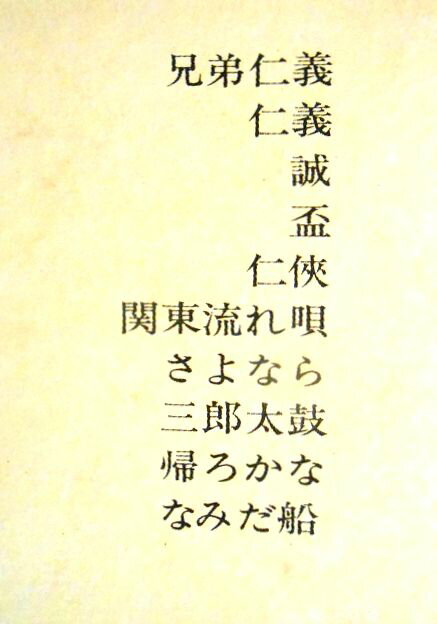 兄弟仁義
仁義
誠
盃
仁俠
関東流れ唄
さよなら
三郎太鼓
帰ろかな
なみだ船